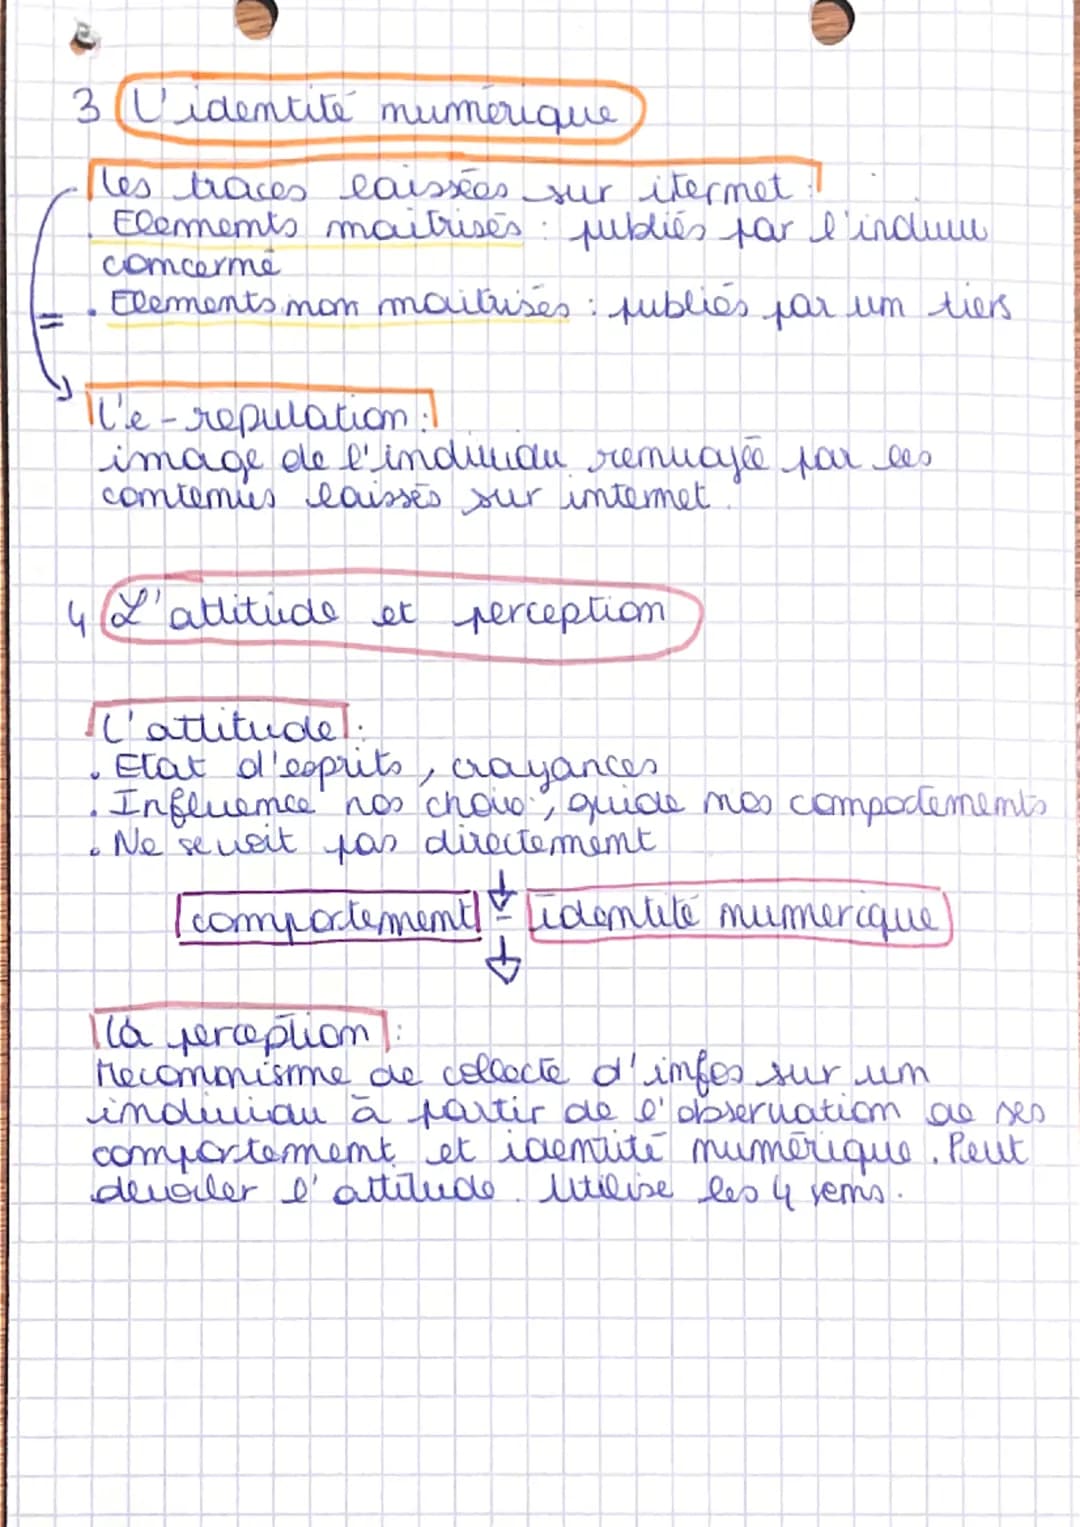 3 L'identité numérique
Les traces laissées sur iternet :
. Elements maitrisés : publiés par l'individu
concerné
. Elements non maitrisés : publiés par un tiers
=
L'e-reputation :
image de l'individu renvoyée par les
contenus laissés sur internet.
4 L'attitude et perception
L'attitude :
. Etat d'esprits, croyances
. Influence nos choix, guide nos comportements
. Ne se voit pas directement
comportement = identité numerique
la perception :
Mecannisme de collecte d'infos sur un
individu à partir de l'observation de ses
comportement et identité numérique. Peut
devoiler l'attitude. Utilise les 4 sens.